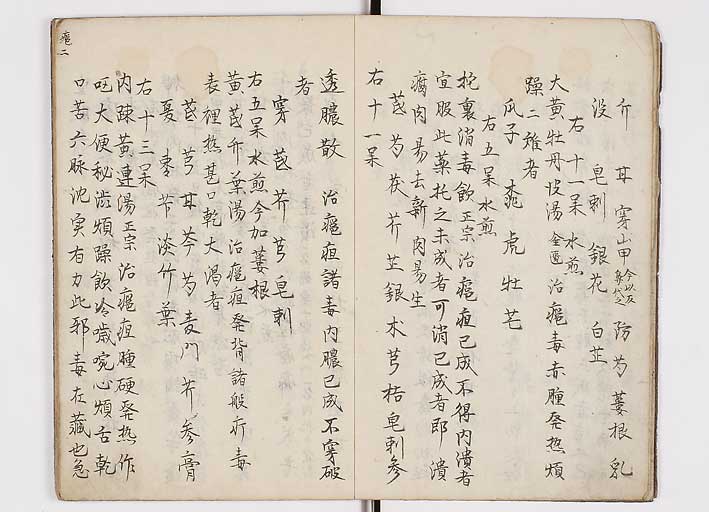 介 耳 穿山甲 今以反鼻代之 防 芍 蔞根 乳
没 皂刺 銀花 白芷
右十一呆 水煎
大黄牡丹皮湯 金匱 治癰毒赤腫発熱煩
躁二難者
瓜子 桃 虎 牡 芒
右五呆水煎
托裏消毒飲 正宗 治癰疽已成不得内潰者
宜服此薬托之未成者可消已成者即潰
腐肉易去新肉易生
芪 芍 茯 芥 芷 銀 木 芎 桔 皂刺 参
右十一呆
透膿散 治癰疽諸毒内膿已成不穿破
者
穿 芪 芥 芎 皂刺
右五呆水煎今加蔞根
黄芪竹葉湯 治癰疽発背諸般疔毒
表裡熱甚口乾大渇者
芪 芎 耳 芩 芍 麦門 芥 参 膏
夏 帰 芐 淡竹葉
右十三呆
内疎黄連湯 正宗 治癰疽腫硬発熱作
呕大便秘澁煩躁飲冷噦啘心煩舌乾
口苦六脉沈実有力此邪毒在蔵也急
癰二